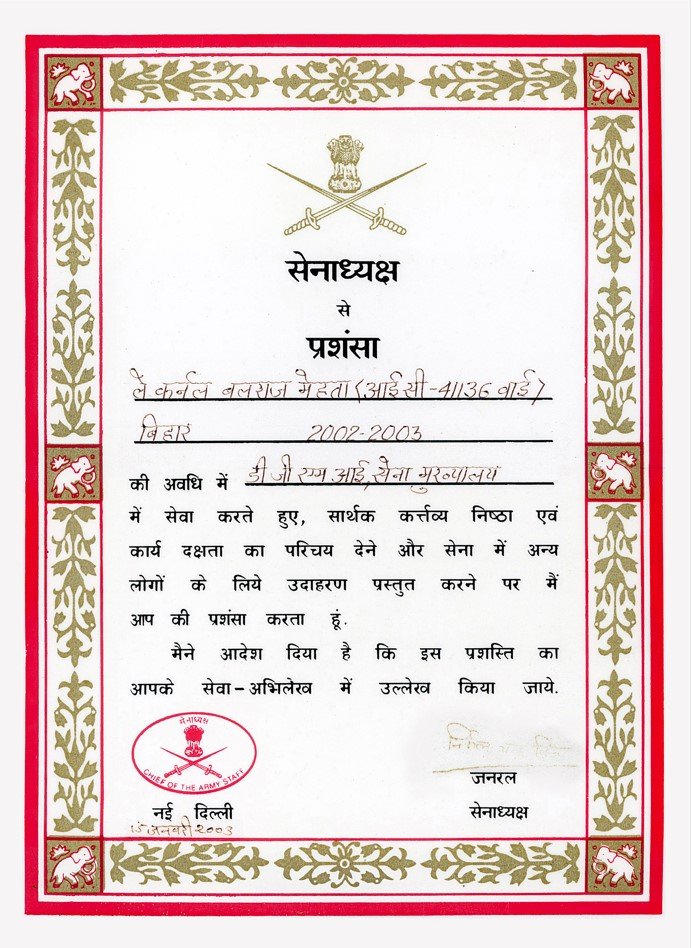 सेनाध्यक्ष
से
प्रशंसा
ले कर्नल बलराज मेहता (आई सी-41136 वाई)
बिहार 2002-2003
की अवधि में डी जी एम आई, सेना मुख्यालय
में सेवा करते हुए, सार्थक कर्त्तव्य निष्ठा एवं
कार्य दक्षता का परिचय देने और सेना में अन्य
लोगों के लिये उदाहरण प्रस्तुत करने पर मैं
आप की प्रशंसा करता हूं.
मैने आदेश दिया है कि इस प्रशस्ति का
आपके सेवा-अभिलेख में उल्लेख किया जाये.
CHIEF OF THE ARMY STAFF
जनरल
नई दिल्ली सेनाध्यक्ष
15 जनवरी 2003